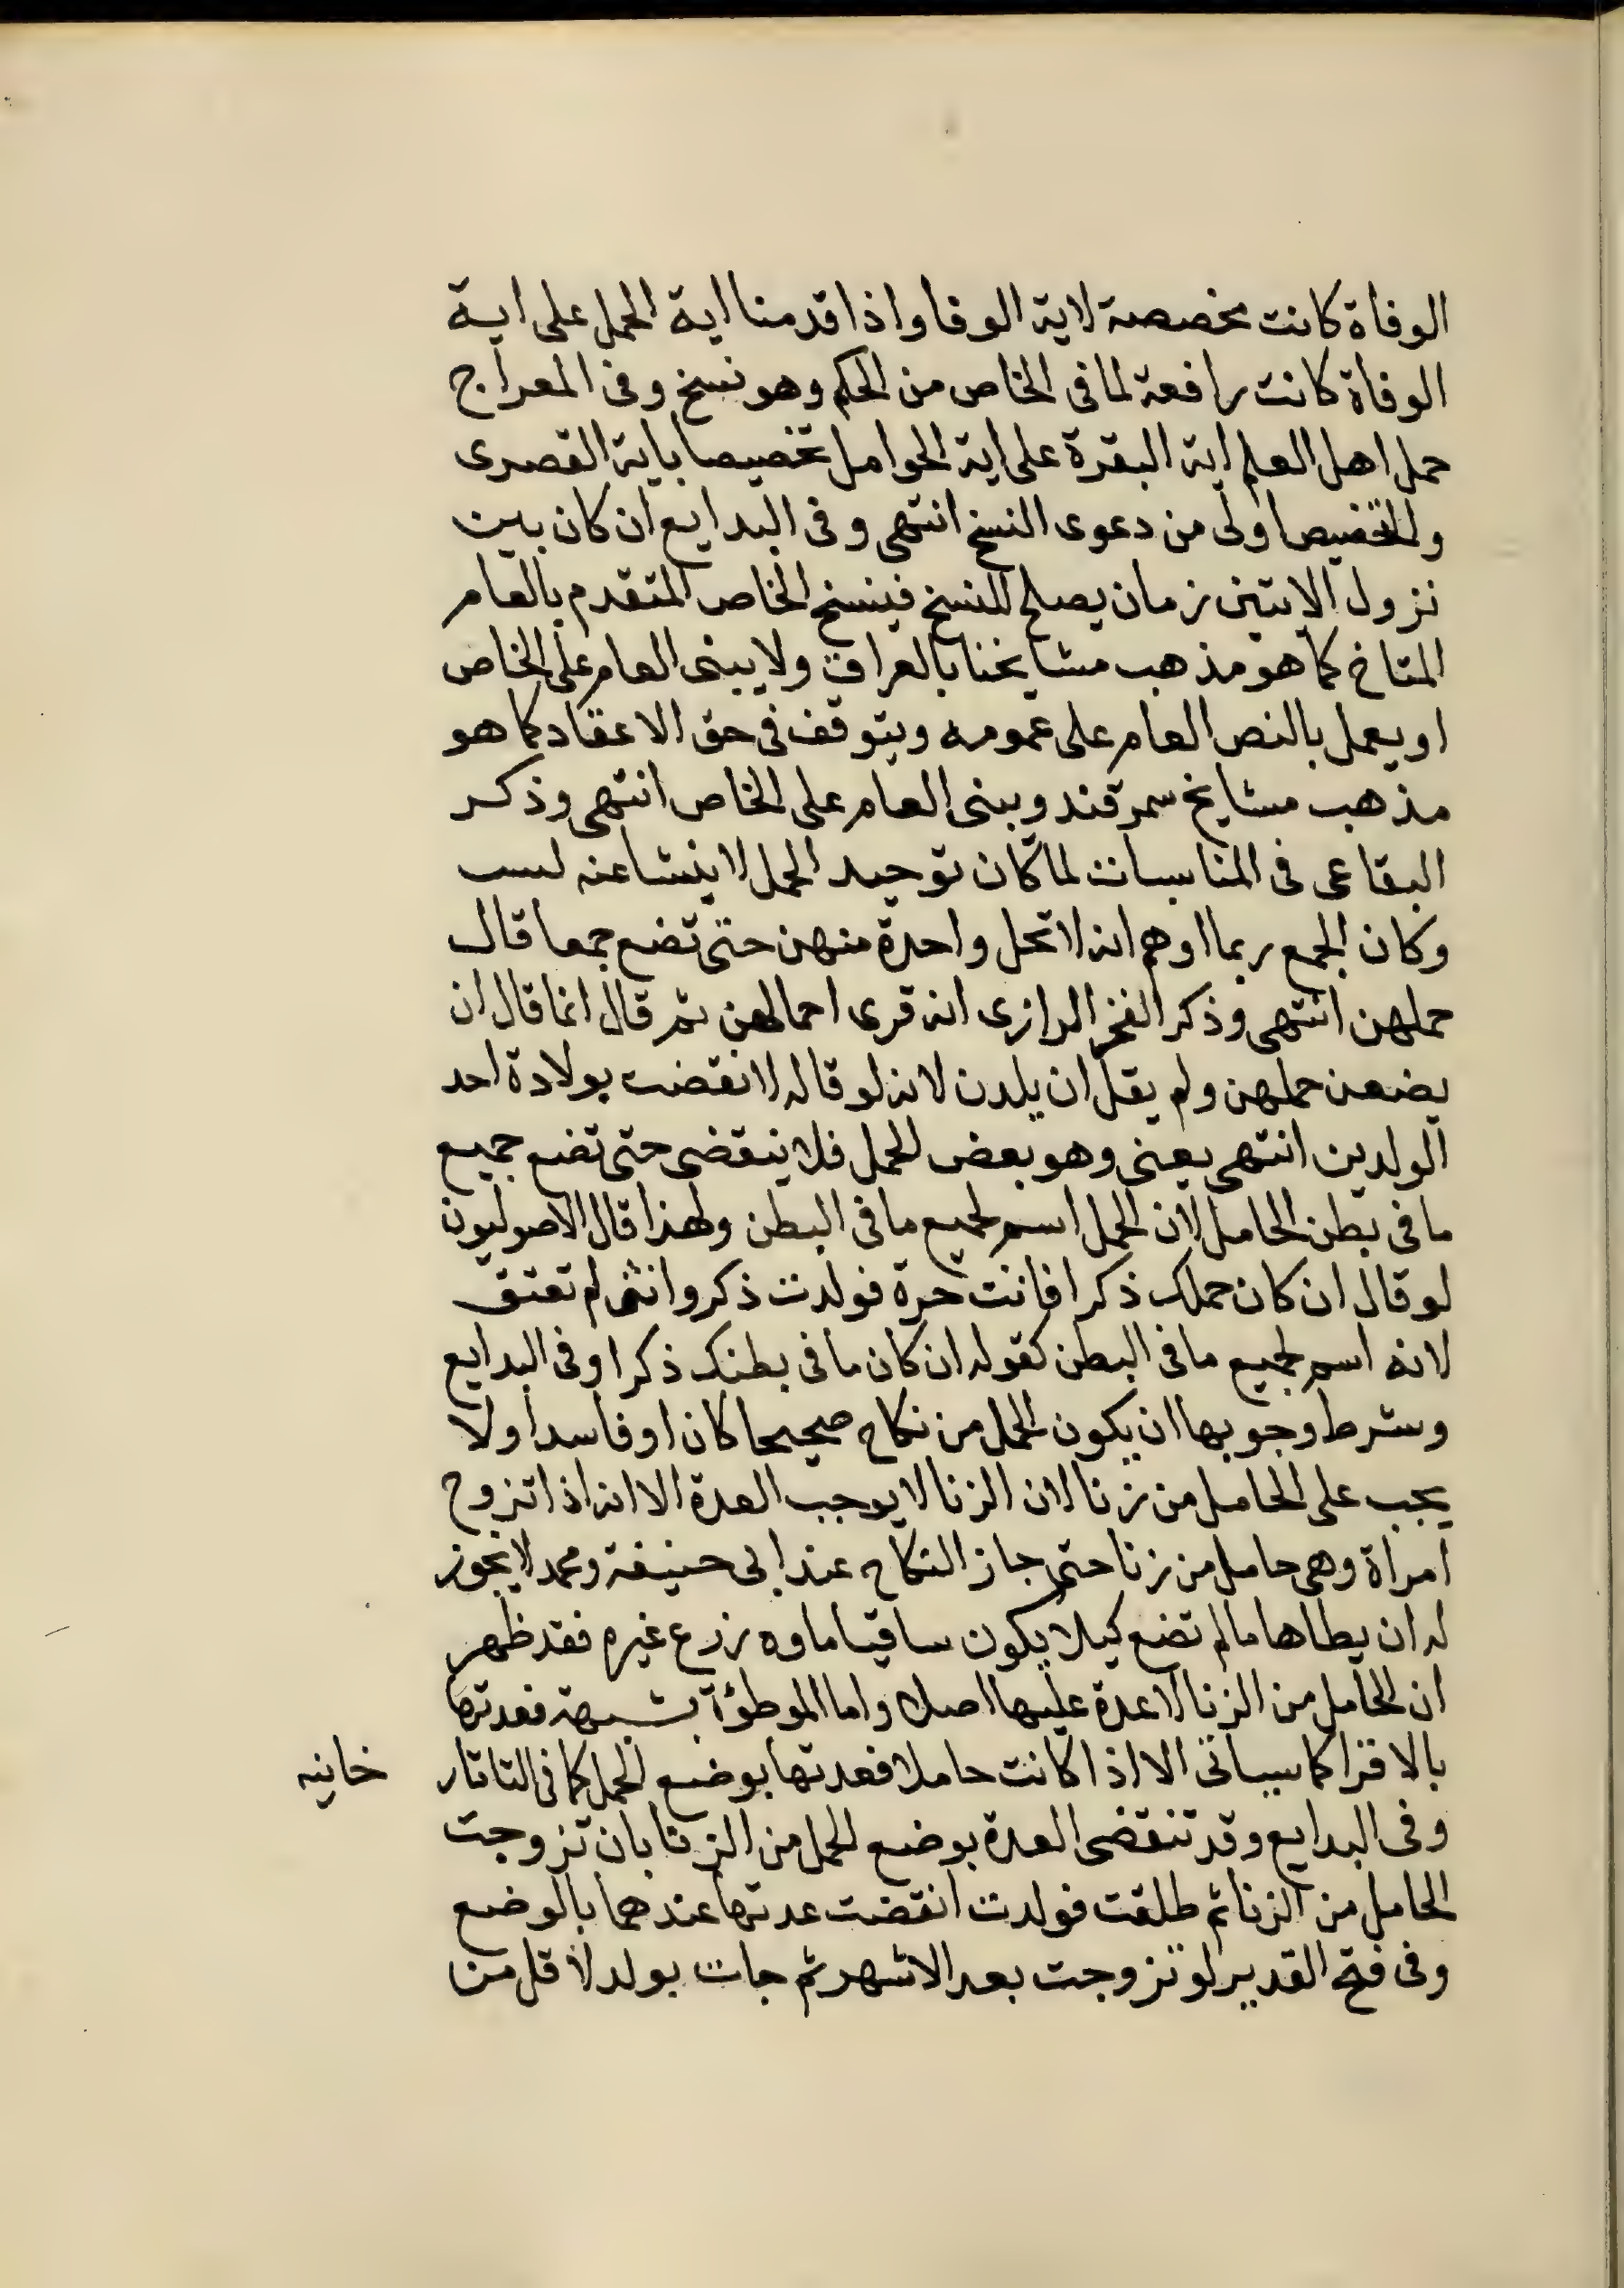 الوفاة كانت مخصصة لاية الوفا واذا قدمنا اية الحمل على اية
الوفاة كانت رافعة لما فى الخاص من الحكم وهو نسخ وفى المعراج
حمل اهل العلم اية البقرة على اية الحوامل تخصيصا باية القصرى
والتخصيص اولى من دعوى النسخ انتهى وفى البدايع ان كان بين
نزول الايتين زمان يصلح للنسخ فينسخ الخاص المتقدم بالعام
المتاخ كما هو مذهب مشايخنا بالعراق ولا يبنى العام على الخاص
او يعمل بالنص العام على عمومه ويتوقف فى حق الاعقاد كما هو
مذهب مشايخ سمرقند ويبنى العام على الخاص انتهى وذكر
البقاعى فى المناسبات لما كان توحيد الحمل لا ينشا عنه لبس
وكان الجمع ربما اوهم انه لا تحل واحدة منهن حتى تضع جمعا قال
حملهن انتهى وذكر الفخر الرازى انه قرى احمالهن ثم قال انما قال ان
يضعن حملهن ولم يقل ان يلدن لانه لو قاله لانقضت بولادة احد
الولدين انتهى يعنى وهو بعض الحمل فلا ينقضى حتى تضع جميع
ما فى بطن الحامل لان الحمل اسم لجميع ما فى البطن ولهذا قال الاصوليون
لو قال ان كان حملك ذكرا فانت حرة فولدت ذكر وانثى لم تعتق
لانه اسم لجميع ما فى البطن كقوله ان كان ما فى بطنك ذكرا وفى البدايع
وشرط وجوبها ان يكون الحمل من نكاح صحيحا كان او فاسدا ولا
يجب على الحامل من زنا لان الزنا لا يوجب العدة الا انه اذا تزوج
امراة وهى حامل من زنا حتى جاز النكاح عند ابى حنيفة ومحمد لا يجوز
له ان يطاها مالم تضع كيلا يكون ساقيا ماوه زرع غيره فقد ظهر
ان الحامل من الزنا لا عدة عليها اصلا واما الموطؤة بشبهة فعدتها
بالاقرا كما سياتى الا اذا كانت حاملا فعدتها بوضع الحمل كما فى التاتار خانيه
وفى البدايع وقد تنقضى العدة بوضع الحمل من الزنا بان تزوجت
الحامل من الزنا ثم طلقت فولدت انقضت عدتها عندهما بالوضع
وفى فتح القدير لو تزوجت بعد الاشهر ثم جات بولد لاقل من